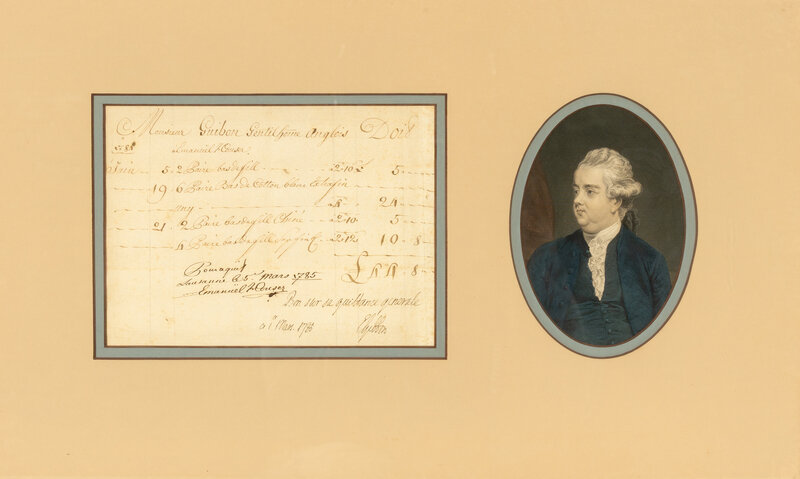 Monsieur Guibon Gentilhome Anglois Doit
Emanuel
Juin 5. 2 Paire bas de fill 2. 10 £ 5
19 6 Paire Bas de Cotton blanc
4 24
21 2 Paire bas de fill Chiné 2. 10 5
4 Paire bas de fill 2. 12 10 8
£ 44 8
Pour aquit
Lausanne 5 mars 1785
Emanuel
Bon sur sa quittance generale
Mars 1785
EGibbon